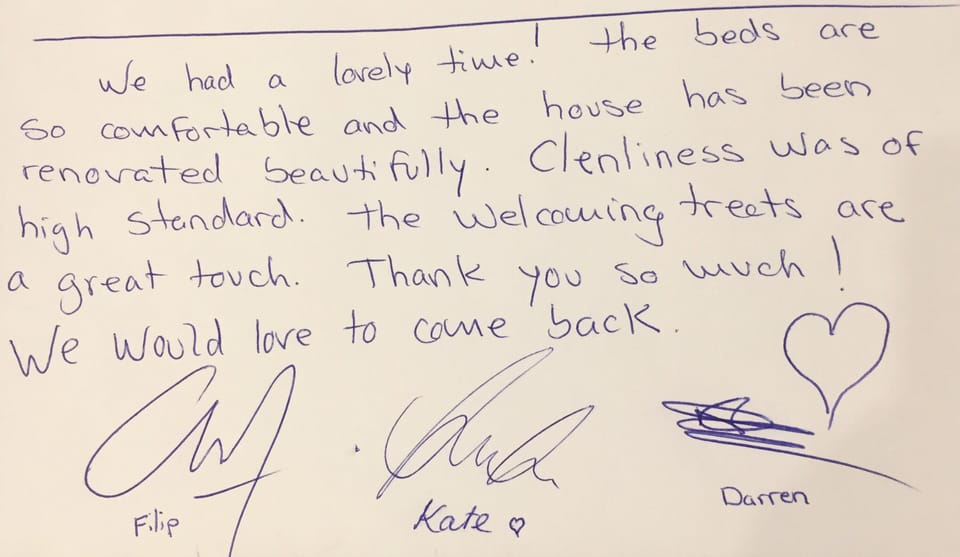 We had a lovely time! the beds are
so comfortable and the house has been
renovated beautifully. Clenliness was of
high standard. the welcoming treets are
a great touch. Thank you so much!
We would love to come back.
Filip Kate ♡ Darren